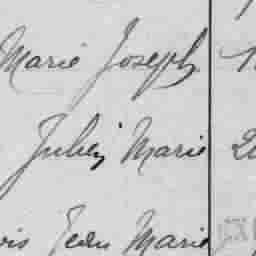 Marie Joseph
Julien Marie
Jean Marie